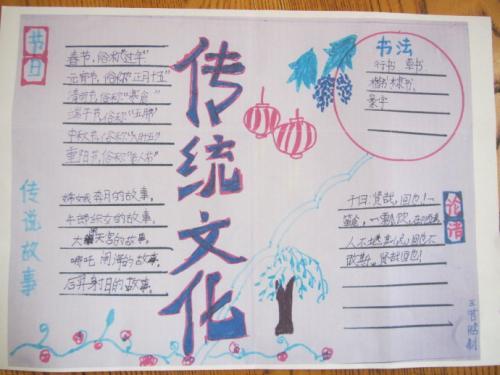 节日
春节,俗称"过年"
元宵节,俗称"正月十五"
清明节,俗称"寒食"
端午节,俗称"五月
中秋节,俗称"八月十五
重阳节,俗称"老人节"
传说故事
嫦娥奔月的故事。
牛郎织女的故事。
大闹天宫的故事。
哪吒闹海的故事。
后羿射日的故事。
传统文化
书法
行书 草书
楷书 隶书
篆字
论语
子曰:贤哉,回也!一
箪食,一瓢饮,在陋巷
人不堪其忧,回也不
改其乐。贤哉回也!